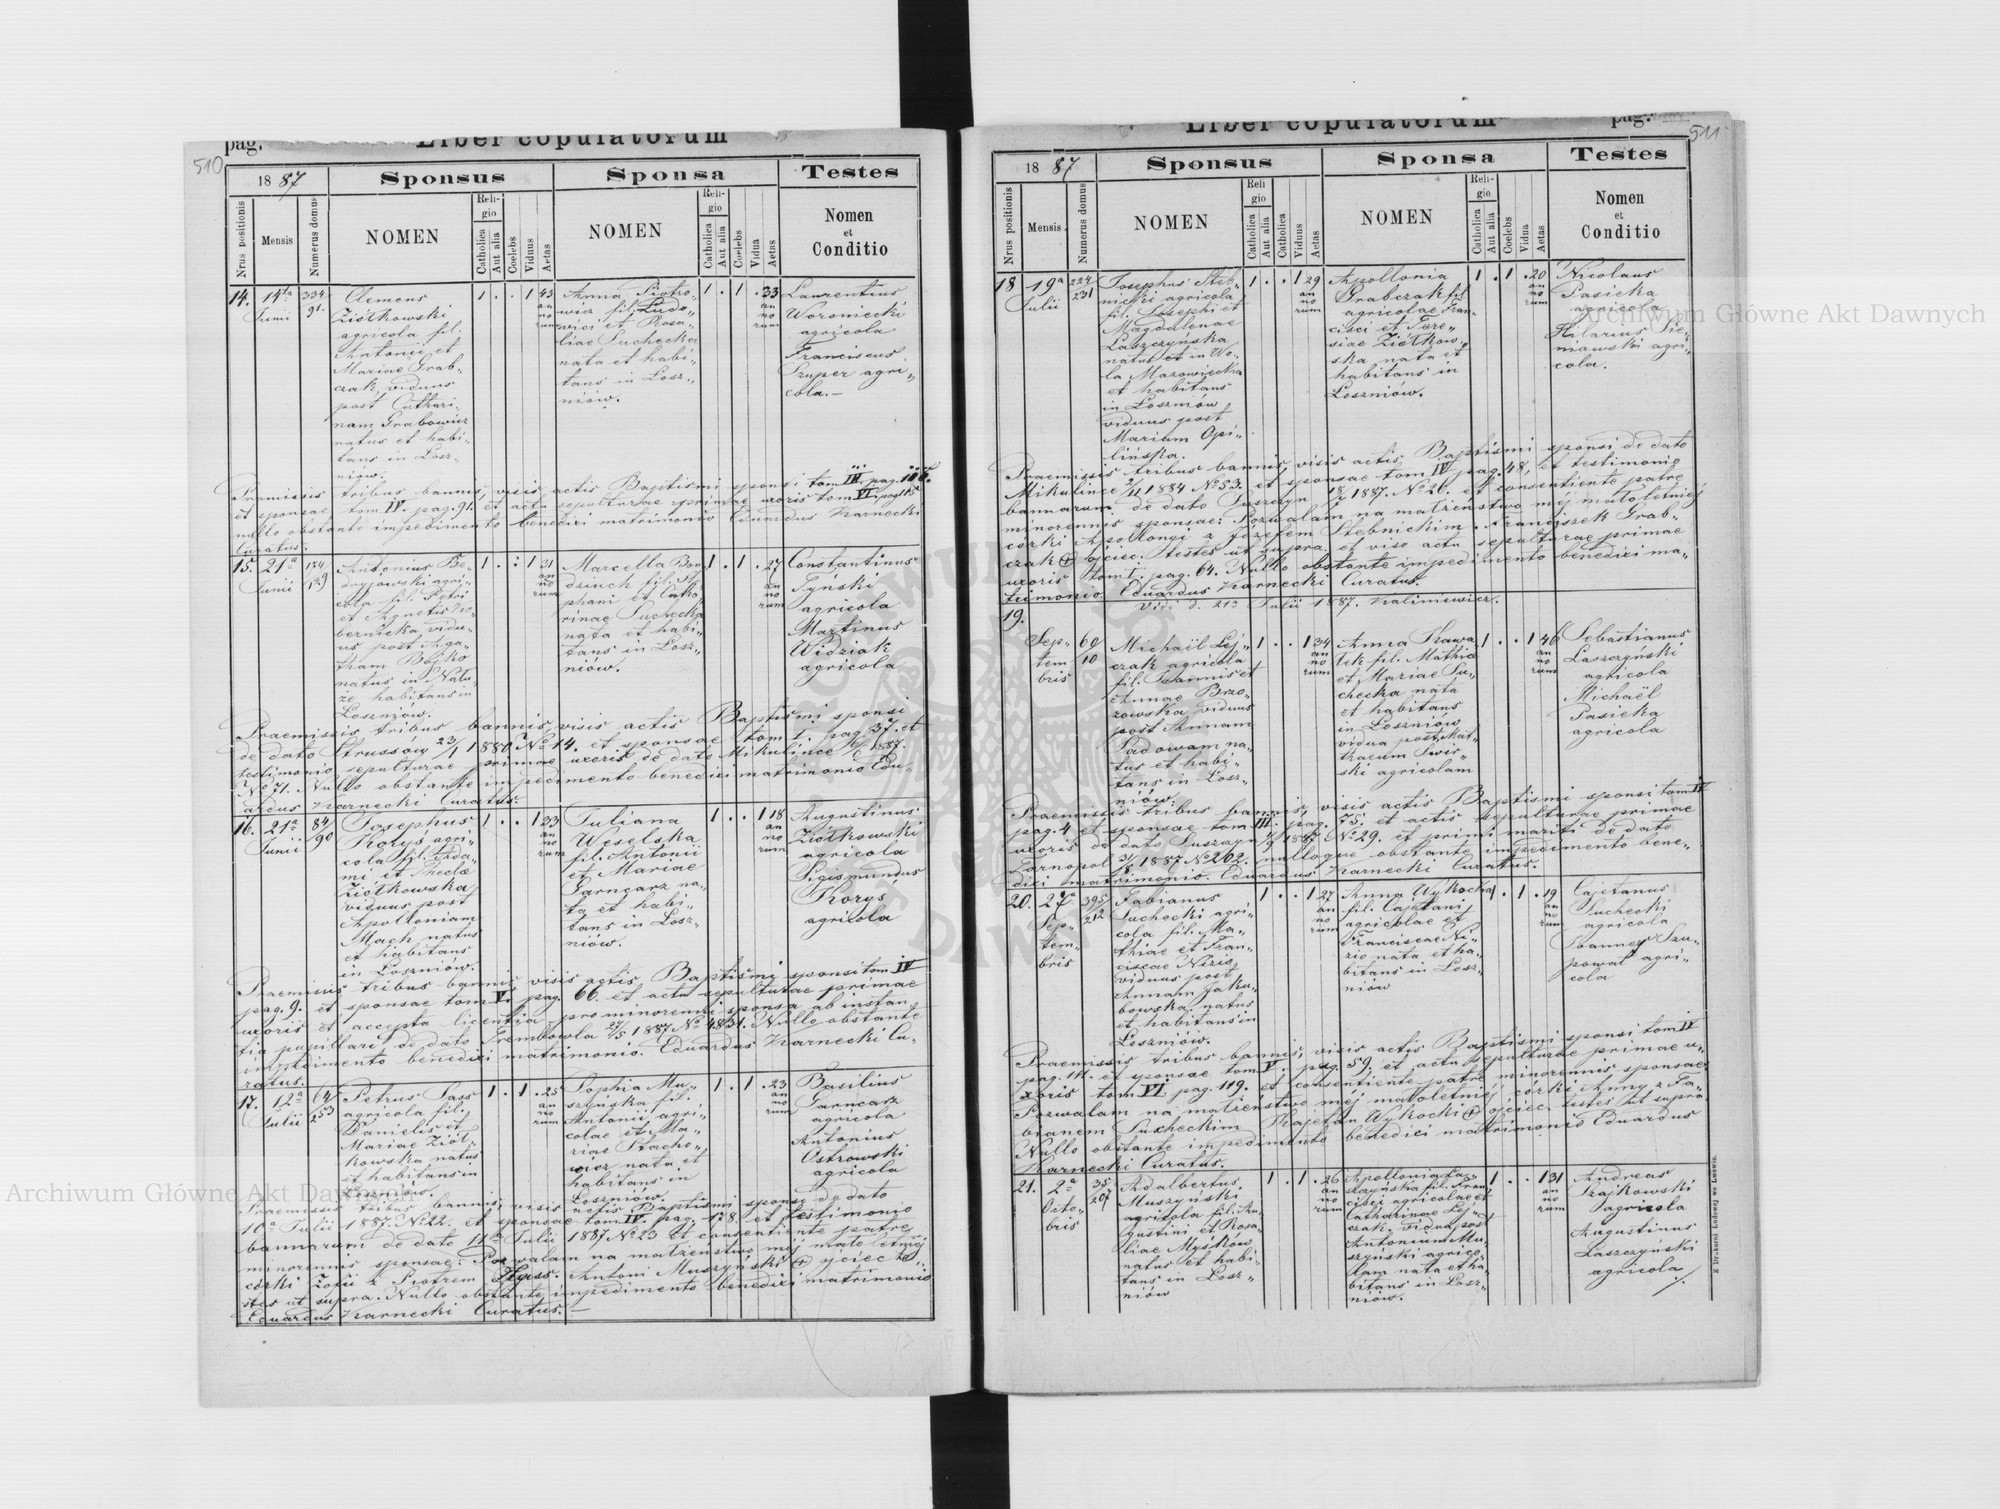 510
pag.
Liber copulatorum
1887
Sponsus
Sponsa
Testes
Nrus positionis
Mensis
Numerus domus
NOMEN
Religio
Catholica
Aut alia
Coelebs
Viduus
Aetas
NOMEN
Religio
Catholica
Aut alia
Coelebs
Vidua
Aetas
Nomen
et
Conditio
14.
14ta
Junii
334
91.
Clemens
Ziółkowski
agricola fil.
Antonii et
Mariae Grab-
czak, viduus
post Cathari-
nam Grabowicz
natus et habi-
tans in Łosz-
niów.
1 . . 1
43
an
no
rum
Anna Piotro-
wicz fil. Ludo-
vici et Rosa-
liae Suchecka
nata et habi-
tans in Łosz-
niów.
1 . 1 .
33
an
no
rum
Laurentius
Woromecki
agricola
Franciscus
Szuper agri-
cola.—
Praemissis tribus bannis, visis actis Baptismi sponsi tom III. pag.
et sponsae tom IV. pag. 91. et actu sepulturae primae uxoris tom VI. pag. 115.
nullo obstante impedimento benedixi matrimonio Eduardus Karnecki
Curatus.
15.
21a
Junii
174
179
Antonius Be-
agri-
cola fil. Petri
et Agnetis Ko-
bernicka, vidu-
us post Aga-
tham Bojko
natus in Nału-
że habitans in
Łoszniów.
1 . : 1
31
an
no
rum
Marcella Bon-
dziuch fil. Ste-
phani et Catha-
rinae Suchecka
nata et habi-
tans in Łosz-
niów.
1 . 1 .
27
an
no
rum
Constantinus
Tyński
agricola
Martinus
Widziak
agricola
Praemissis tribus bannis, visis actis Baptismi sponsi
de dato Strussów 23/1 1880 No 14. et sponsae tom I. pag. 37. et
testimonio sepulturae primae uxoris de dato Mikulince 6/6 1887.
No 71. Nullo obstante impedimento benedixi matrimonio Edu-
ardus Karnecki Curatus.
16.
21a
Junii
84
90
Josephus
Koryś agri-
cola fil. Ada-
mi et Theclae
Ziółkowska
viduus post
Apolloniam
Mach natus
et habitans
in Łoszniów.
1 . . 1
33
an
no
rum
Juliana
Weselska
fil. Antonii
et Mariae
Garncarz na-
ta et habi-
tans in Łosz-
niów.
1 . . 1
18
an
no
rum
Augustinus
Ziółkowski
agricola
Sigismundus
Koryś
agricola
Praemissis tribus bannis, visis actis Baptismi sponsi tom IV
pag. 9. et sponsae tom V. pag. 66. et actu sepulturae primae
uxoris et accepta licentia pro minorenni sponsa ab instan-
tia pupillari de dato Trembowla 27/5 1887 No 4831. Nullo obstante
impedimento benedixi matrimonio. Eduardus Karnecki Cu-
ratus.
17.
12a
Julii
64
253
Petrus Sass
agricola fil.
Danielis et
Mariae Ziół-
kowska natus
et habitans in
Łoszniów.
1 . 1 .
25
an
no
rum
Sophia Mu-
szyńska fil.
Antonii agri-
colae et Ma-
riae Stacho-
wicz nata et
habitans in
Łoszniów.
1 . 1 .
23
an
no
rum
Basilius
Garncarz
agricola
Antonius
Ostrowski
agricola
Praemissis tribus bannis, visis actis Baptismi sponsi de dato
10a Julii 1887. No 22. et sponsae tom IV. pag. 178. et testimonio
bannarum de dato 11a Julii 1887 No 23 et consentiente patre
minorennis sponsae: Pozwalam na małżeństwo mej małoletniej
córki Zofii z Piotrem Sass. Antoni Muszyński + ojciec te-
stes ut supra. Nullo obstante impedimento benedixi matrimonio
Eduardus Karnecki Curatus.—
511
Liber copulatorum
pag.
1887
Sponsus
Sponsa
Testes
Nrus positionis
Mensis
Numerus domus
NOMEN
Religio
Catholica
Aut alia
Catholica
Viduus
Aetas
NOMEN
Religio
Catholica
Aut alia
Coelebs
Vidua
Aetas
Nomen
et
Conditio
18
19a
Julii
224
231
Josephus Steb-
nicki agricola
fil. Josephi et
Magdalenae
Laszczyńska
natus et in Wo-
la Mazowiecka
et habitans
in Łoszniów
viduus post
Mariam Opi-
lińska.
1 . . 1
29
an
no
rum
Apollonia
Grabczak fil.
agricolae Fran-
cisci et Tere-
siae Ziółkow-
ska, nata et
habitans in
Łoszniów.
1 . 1 .
20
an
no
rum
Nicolaus
Pasieka
agricola
Hilarius Sie-
niawski agri-
cola.
Praemissis tribus bannis, visis actis Baptismi sponsi de dato
Mikulince 2/11 1884 No 53. et sponsae tom IV pag. 48, et testimonio
bannarum de dato Łuszczyn 18/7 1887. No 26. et consentiente patre
minorennis sponsae: Pozwalam na małżeństwo mej małoletniej
córki Apollonyi z Józefem Stebnickim. Franciszek Grab-
czak + ojciec. testes ut supra. et viso actu sepulturae primae
uxoris tom I. pag. 64. Nullo obstante impedimento benedixi ma-
trimonio Eduardus Karnecki Curatus.
Vidi d. 21a Julii 1887. Kaliniewicz.
19.
Sep-
tem
bris
60
10
Michaël Lej-
czak agricola
fil. Joannis et
Annae Brzo-
zowska viduus
post Annam
Sadowam na-
tus et habi-
tans in Łosz-
niów.
1 . . 1
34
an
no
rum
Anna Kawa
lek fil. Mathiae
et Mariae Su-
checka nata
et habitans
in Łoszniów
vidua post Mat-
thaeum Swis-
ski agricolam
1 . . 1
46
an
no
rum
Sebastianus
Laszczyński
agricola
Michaël
Pasieka
agricola
Praemissis tribus bannis, visis actis Baptismi sponsi tom IV
pag. 4 et sponsae tom III. pag. 75. et actis sepulturae primae
uxoris de dato Łuszczyn 4/9 1887 No 29. et primi mariti de dato
Tarnopol 31/8 1887 No 262. nulloque obstante impedimento bene-
dixi matrimonio. Eduardus Karnecki Curatus.
20.
27a
Sep-
tem-
bris
395
212
Fabianus
Suchecki agri-
cola fil. Ma-
thiae et Fran-
ciscae Nizio,
viduus post
Annam Jaku-
bowska. natus
et habitans in
Łoszniów.
1 . . 1
27
an
no
rum
Anna Wykocka
fil. Cajetani
agricolae et
Franciscae Ni-
zio nata et ha-
bitans in Łosz-
niów
1 . 1 .
19
an
no
rum
Cajetanus
Suchecki
agricola
Joannes Szu-
pował agri-
cola
Praemissis tribus bannis, visis actis Baptismi sponsi tom IV
pag. 111. et sponsae tom V. pag. 59. et actu sepulturae primae u-
xoris tom VI pag. 119. et consentiente patre minorennis sponsae:
Pozwalam na małżeństwo mej małoletniej córki Anny z Fa-
bianem Sucheckim Kajetan Wykocki + ojciec. testes ut supra
Nullo obstante impedimento benedixi matrimonio Eduardus
Karnecki Curatus.
21.
2a
Octo-
bris
35
207
Adalbertus
Muszyński
agricola fil. Au-
gustini et Rosa-
liae Myśków
natus et habi-
tans in Łosz-
niów
1 . 1 .
26
an
no
rum
Apollonia Las-
szczyńska fil. Fran-
cisci agricolae et
Catharinae Lej-
czak. vidua post
Antonium Mu-
szyński agrico-
lam nata et ha-
bitans in Łosz-
niów.
1 . . 1
31
an
no
rum
Andreas
Szajkowski
agricola
Augustinus
Laszczyński
agricola
Z Drukarni Ludowej we Lwowie.
Archiwum Główne Akt Dawnych
Archiwum Główne Akt Dawnych